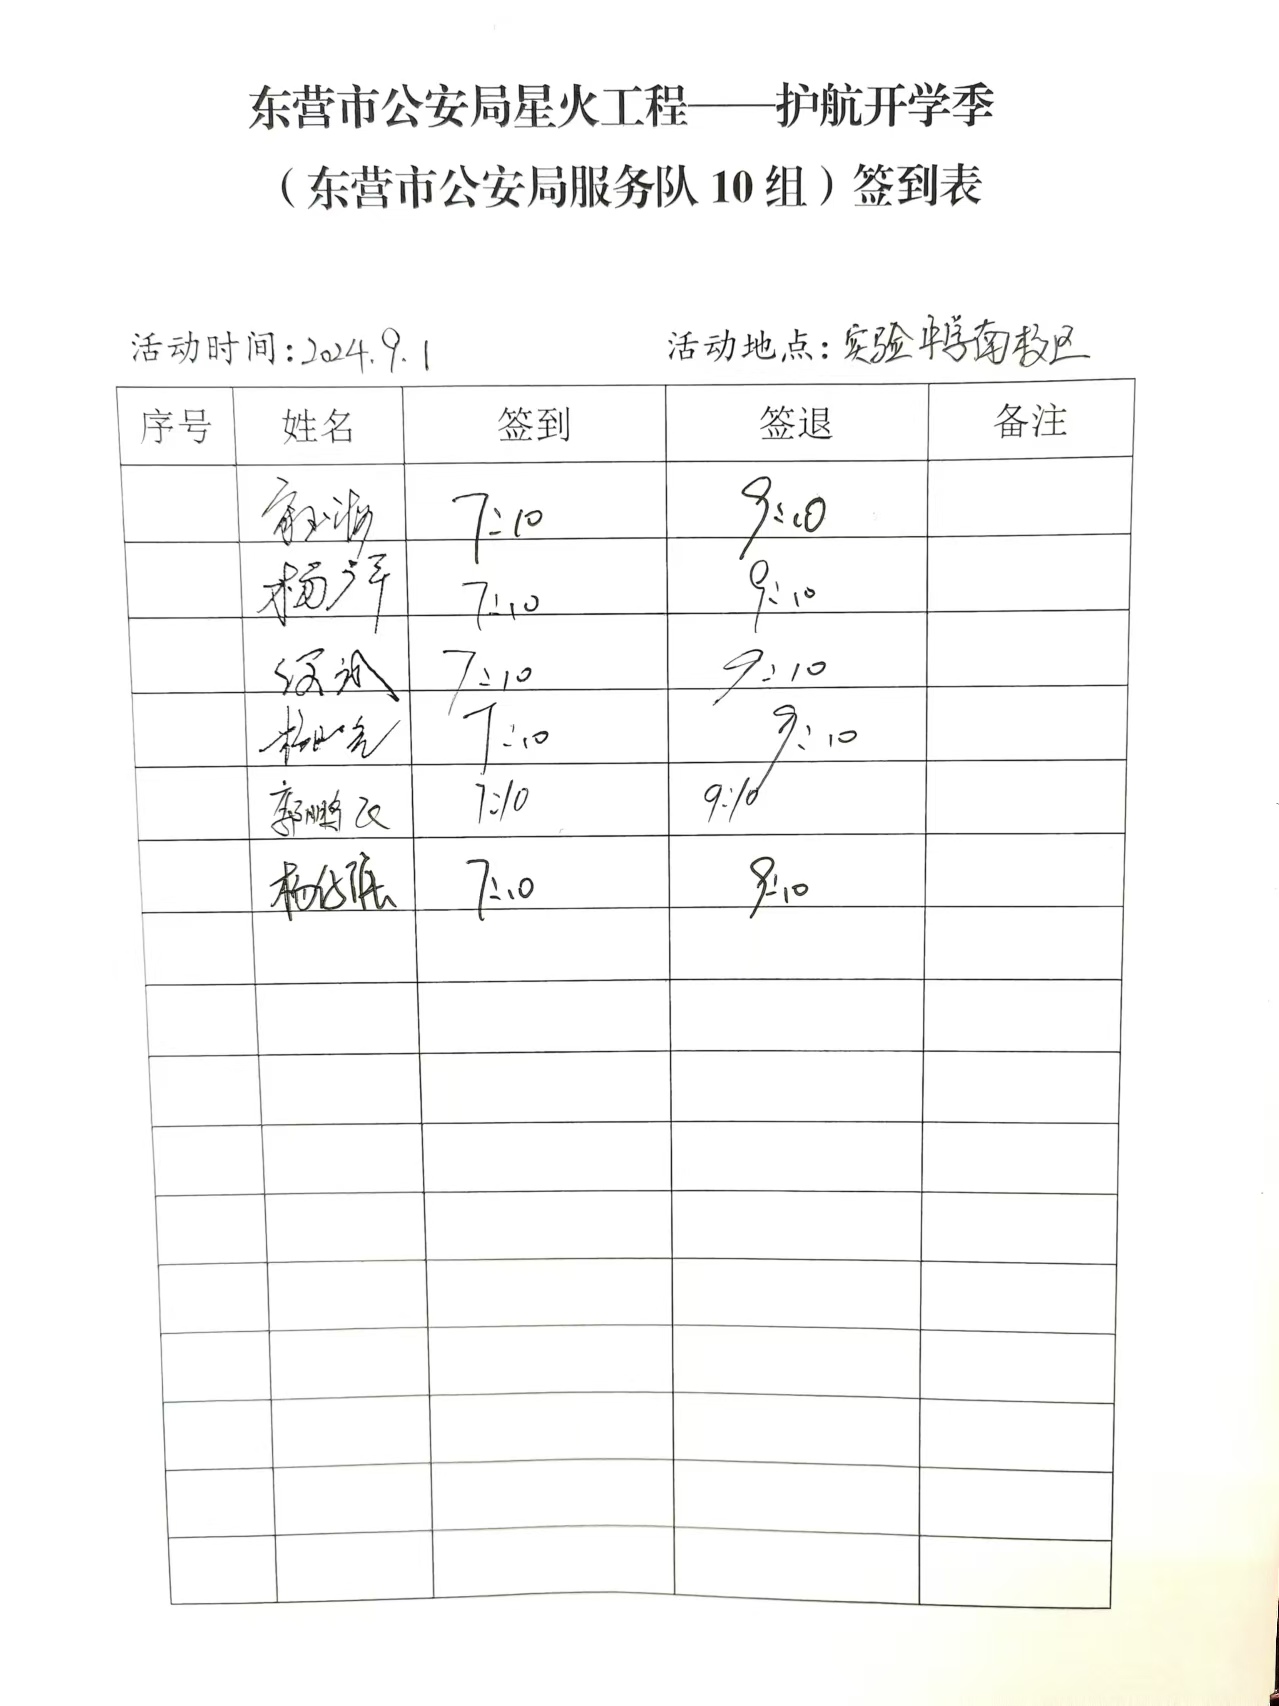 东营市公安局星火工程——护航开学季
（东营市公安局服务队 10 组）签到表
活动时间：2024.9.1 活动地点：实验中学南校区
序号 姓名 签到 签退 备注
7:10 9:10
杨军 7:10 9:10
7:10 9:10
7:10 9:10
郭鹏飞 7:10 9:10
杨 7:10 9:10